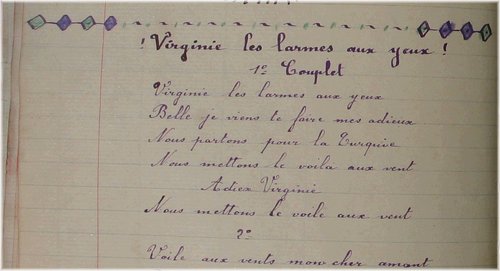 ! Virginie les larmes aux yeux !
1º Couplet
Virginie les larmes aux yeux
Belle je viens te faire mes adieux
Nous partons pour la Turquive
Nous mettons le voila aux vent
Adiex Virginie
Nous mettons le voile aux vent
2º
Voile aux vents mon cher amant